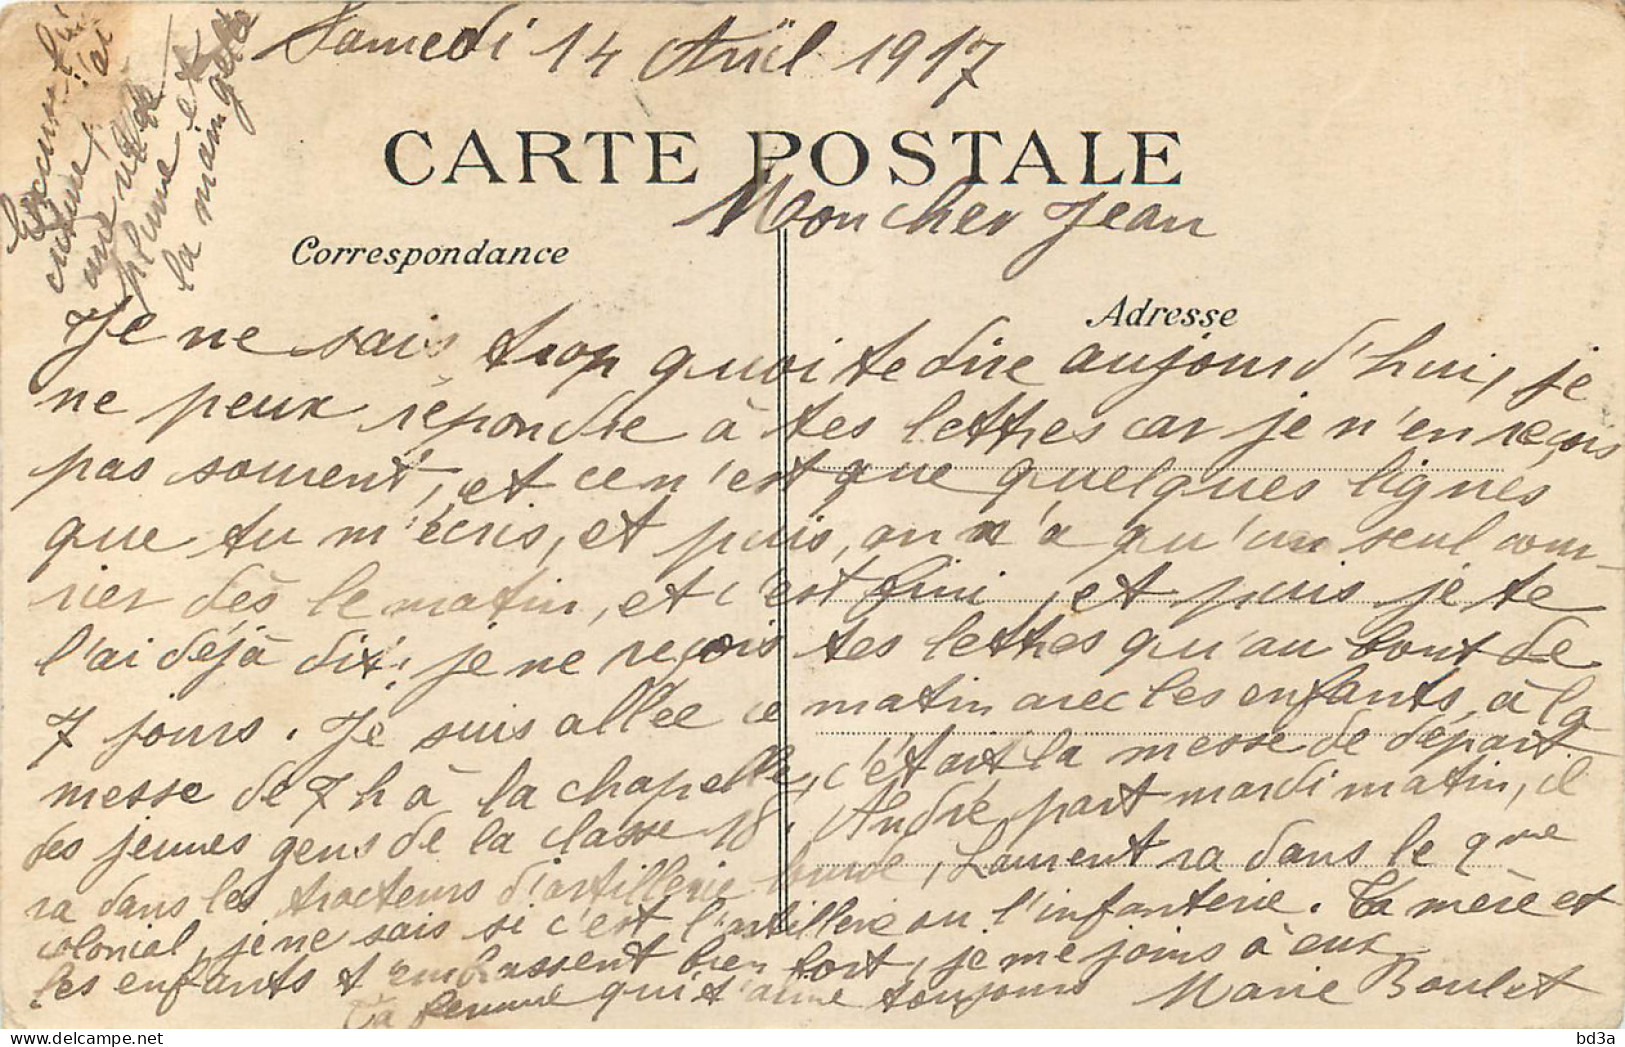 Samedi 14 Avril 1917
CARTE POSTALE
Mon cher Jean
Correspondance
Adresse
Je ne sais trop quoi te dire aujourd'hui, je
ne peux répondre à tes lettres car je n'en reçois
pas souvent, et ce n'est que quelques lignes
que tu m'écris, et puis, on n'a qu'un seul cour-
rier dès le matin, et c'est fini, et puis je te
l'ai déjà dit, je ne reçois tes lettres qu'au bout de
7 jours. Je suis allée ce matin avec les enfants, à la
messe de 7 h à la chapelle, c'était la messe de départ
des jeunes gens de la classe 18. André part mardi matin, il
va dans les tracteurs d'artillerie lourde, Laurent va dans le 9me
colonial, je ne sais si c'est l'artillerie ou l'infanterie. Ta mère et
les enfants t'embrassent bien fort, je me joins à eux
Ta femme qui t'aime toujours Marie Boulet
j'ai
une
plume et
la main gelée
bd3a